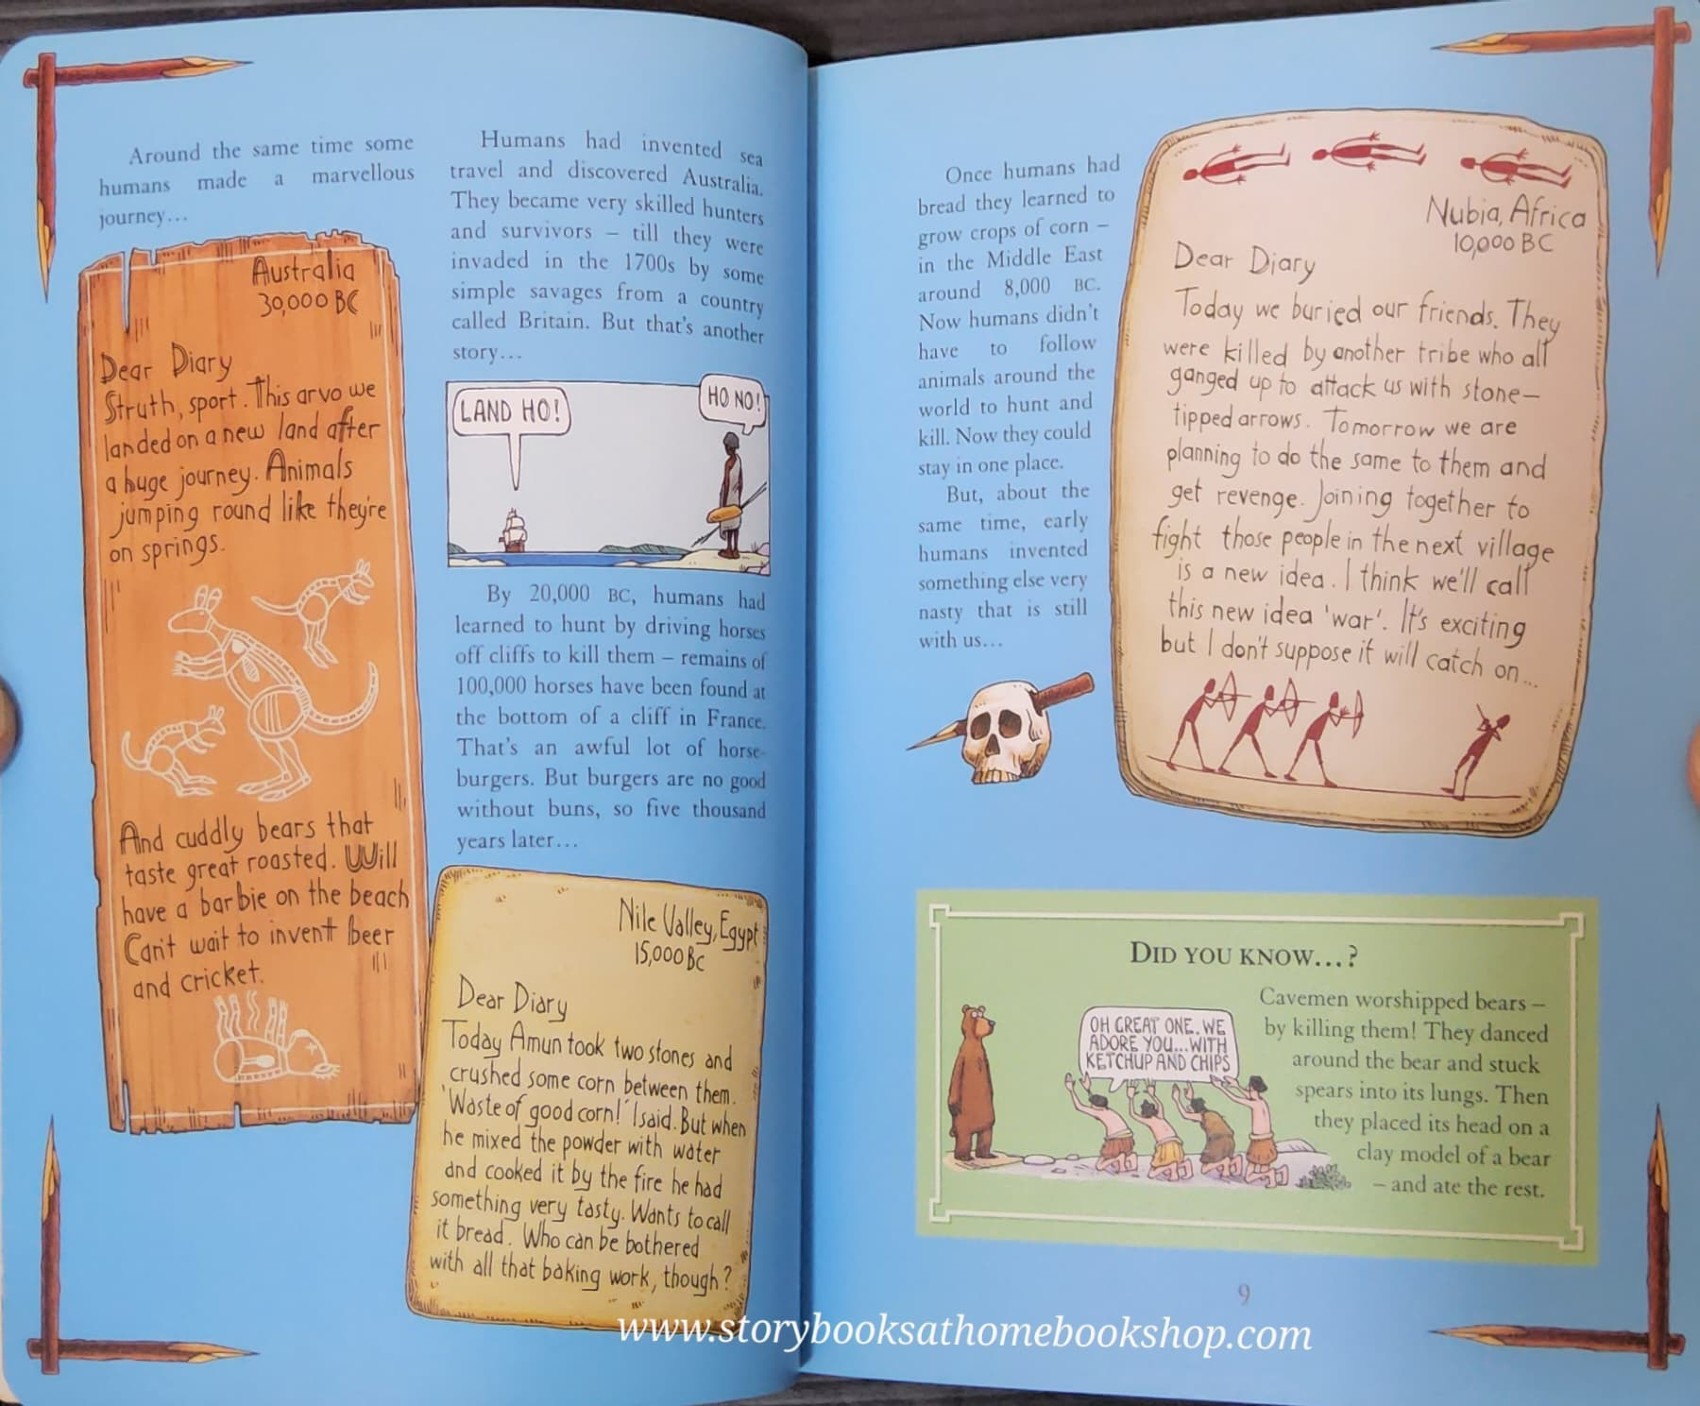 Around the same time some
humans made a marvellous
journey...
Australia
30,000 BC
Dear Diary
Struth, sport. This arvo we
landed on a new land after
a huge journey. Animals
jumping round like they're
on springs.
And cuddly bears that
taste great roasted. Will
have a barbie on the beach
Can't wait to invent beer
and cricket.
Humans had invented sea
travel and discovered Australia.
They became very skilled hunters
and survivors – till they were
invaded in the 1700s by some
simple savages from a country
called Britain. But that's another
story...
LAND HO!
HO NO!
By 20,000 BC, humans had
learned to hunt by driving horses
off cliffs to kill them – remains of
100,000 horses have been found at
the bottom of a cliff in France.
That's an awful lot of horse-
burgers. But burgers are no good
without buns, so five thousand
years later...
Nile Valley, Egypt
15,000 BC
Dear Diary
Today Amun took two stones and
crushed some corn between them.
'Waste of good corn!' I said. But when
he mixed the powder with water
and cooked it by the fire he had
something very tasty. Wants to call
it bread. Who can be bothered
with all that baking work, though?
Once humans had
bread they learned to
grow crops of corn –
in the Middle East
around 8,000 BC.
Now humans didn't
have to follow
animals around the
world to hunt and
kill. Now they could
stay in one place.
But, about the
same time, early
humans invented
something else very
nasty that is still
with us...
Nubia, Africa
10,000 BC
Dear Diary
Today we buried our friends. They
were killed by another tribe who all
ganged up to attack us with stone–
tipped arrows. Tomorrow we are
planning to do the same to them and
get revenge. Joining together to
fight those people in the next village
is a new idea. I think we'll call
this new idea 'war'. It's exciting
but I don't suppose it will catch on...
DID YOU KNOW...?
OH GREAT ONE. WE
ADORE YOU...WITH
KETCHUP AND CHIPS
Cavemen worshipped bears –
by killing them! They danced
around the bear and stuck
spears into its lungs. Then
they placed its head on a
clay model of a bear
– and ate the rest.
9
www.storybooksathomebookshop.com